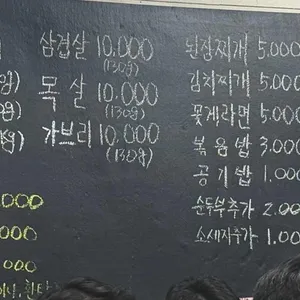 삼겹살 10,000
(130g)
목살 10,000
(130g)
가브리 10,000
(130g)
된장찌개 5.000
김치찌개 5.000
꽃게라면 5.000
볶음밥 3.000
공기밥 1.000
순두부추가 2.000
소세지추가 1.000
000
000
000